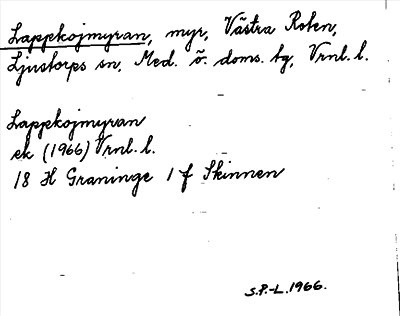 Lappkojmyran, myr, Västra Roten,
Ljustorps sn, Med. ö. doms. tg, Vrnl. l.
Lappkojmyran
ek (1966) Vrnl. l.
18 H Graninge 1 f Skinnen
S.P.-L. 1966.